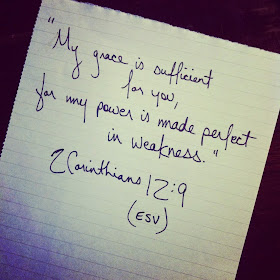 "My grace is sufficient
for you,
for my power is made perfect
in weakness."
2 Corinthians 12:9
(ESV)